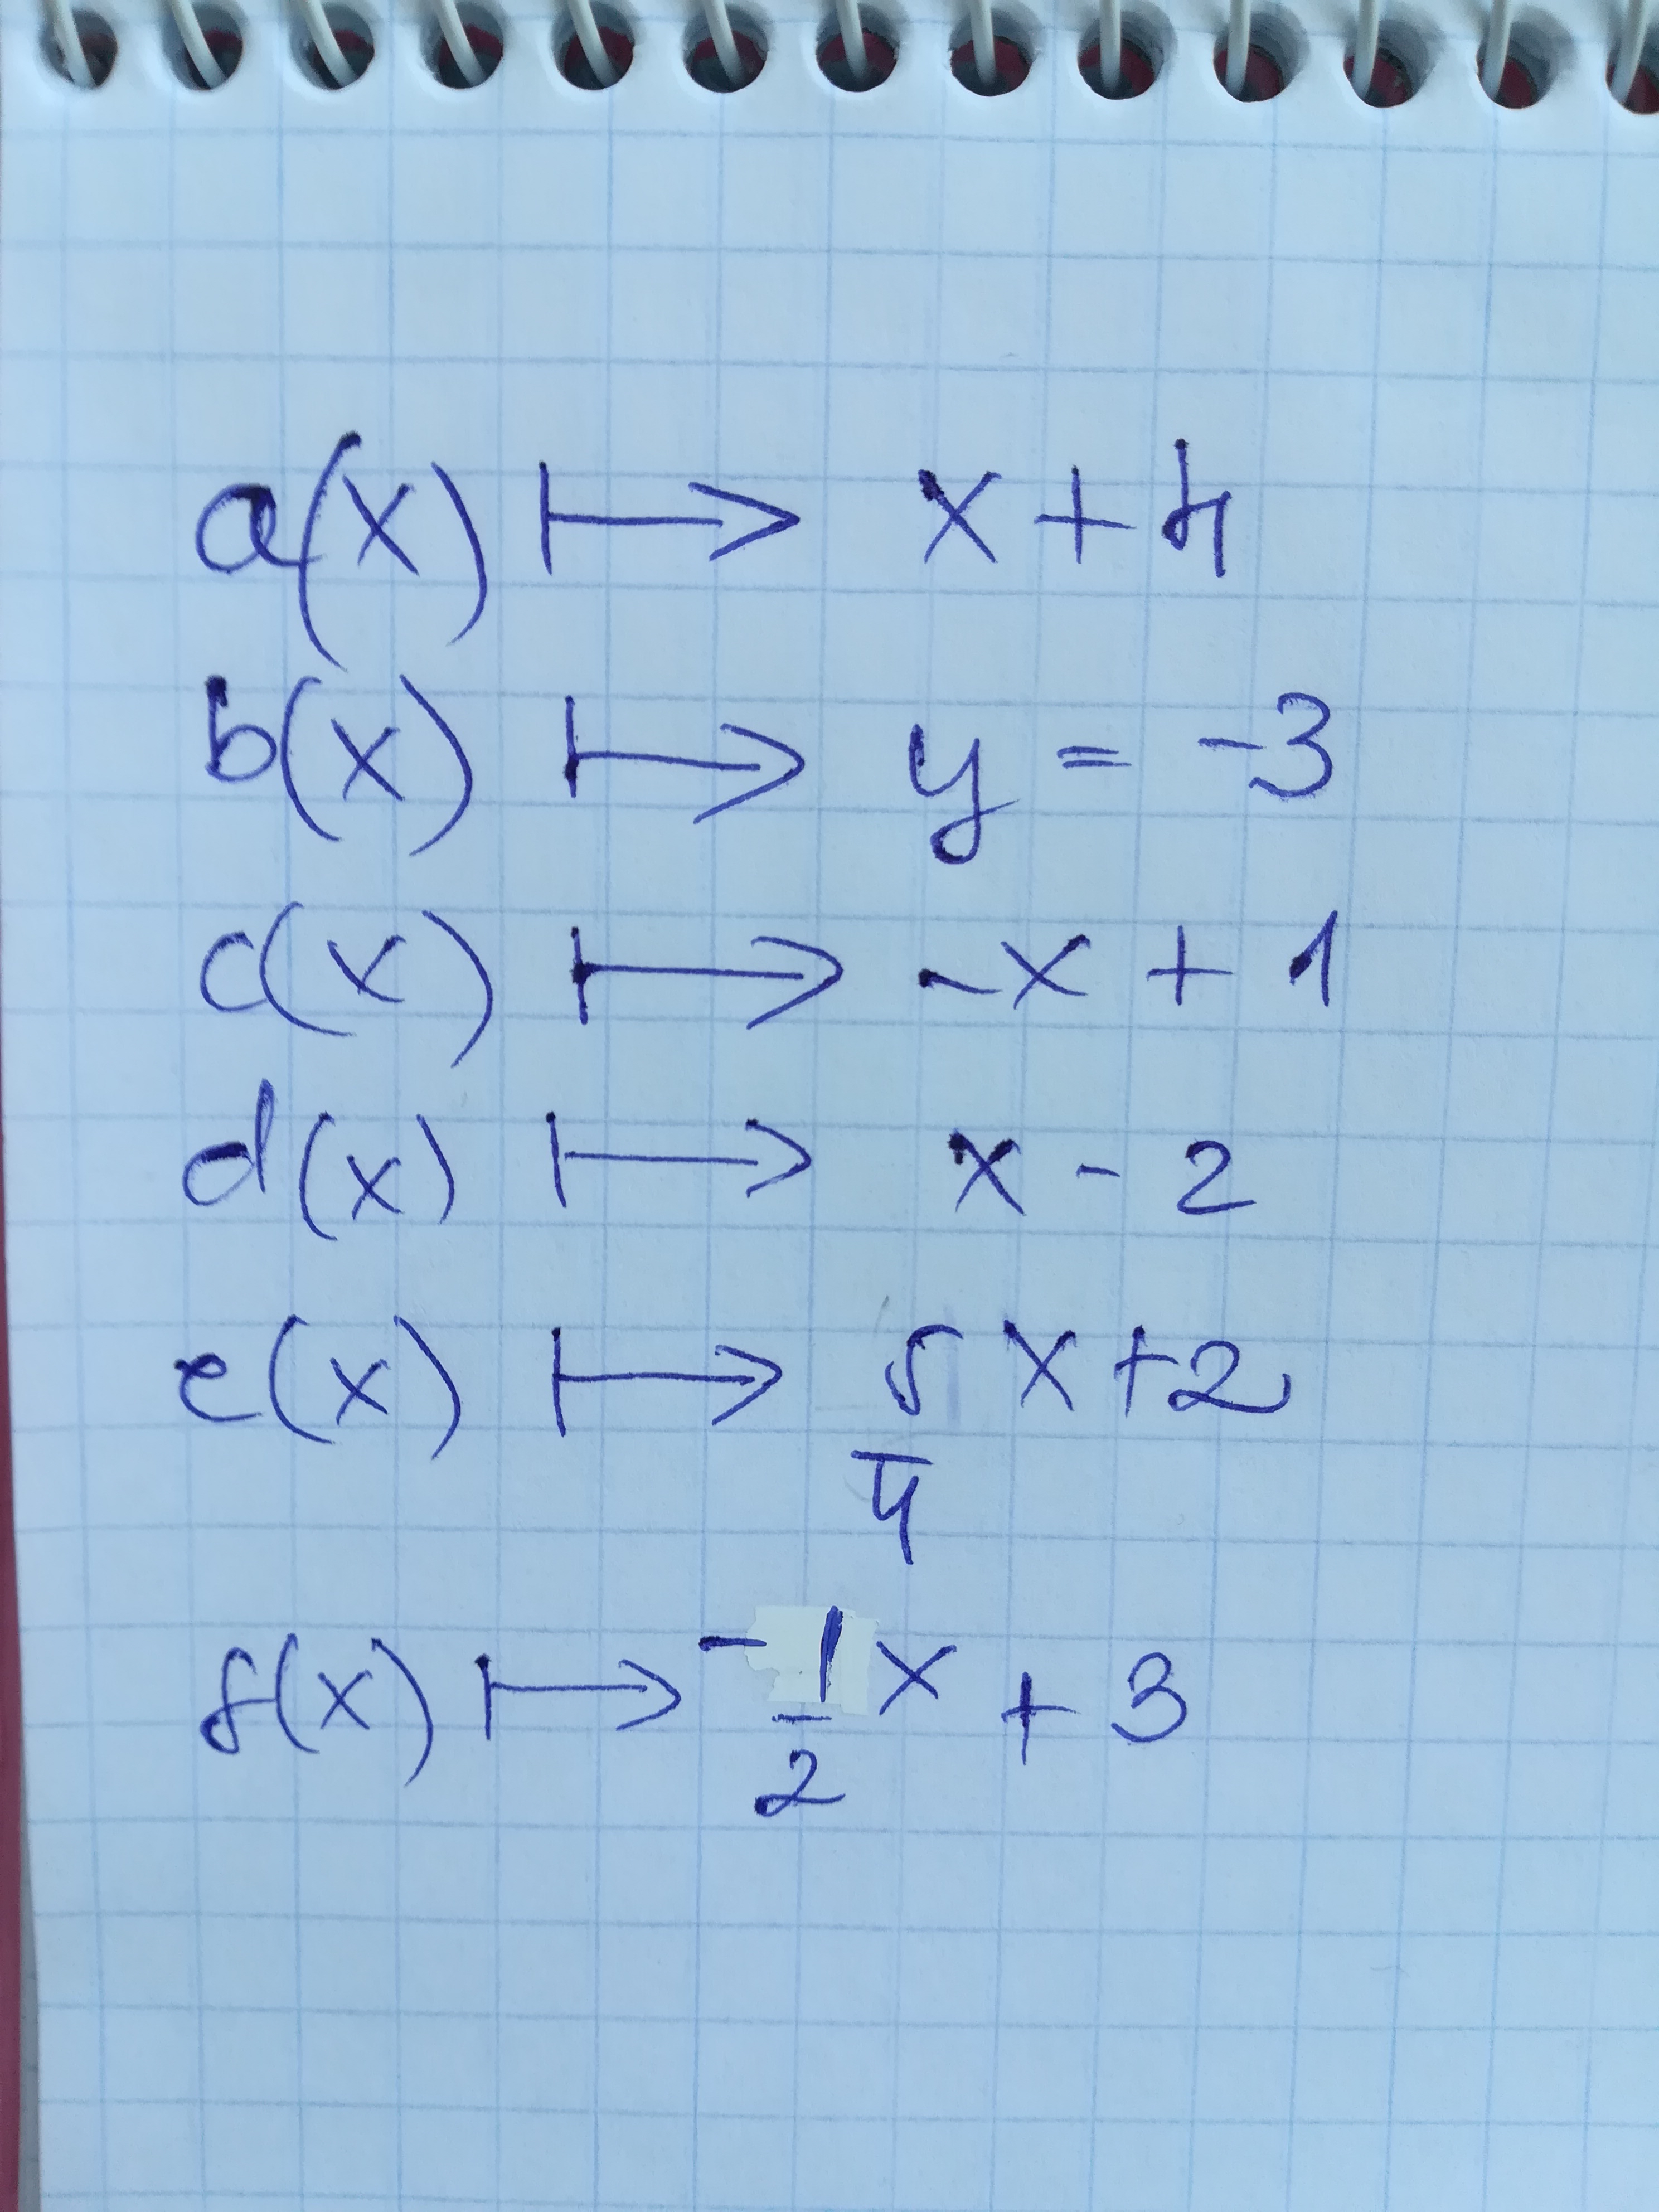 a(x) ↦ x + 4
b(x) ↦ y = -3
c(x) ↦ -x + 1
d(x) ↦ x - 2
e(x) ↦ 5/4 x + 2
f(x) ↦ -1/2 x + 3